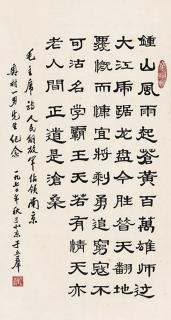 鍾山風雨起蒼黃百萬雄师过
大江虎踞龍盘今胜昔天翻地
覆慨而慷宜將剩勇追窮寇不
可沽名學霸王天若有情天亦
老人間正道是滄桑
毛主席詩人民解放軍佔領南京
先生纪念
一九七〇年秋 北京于立群